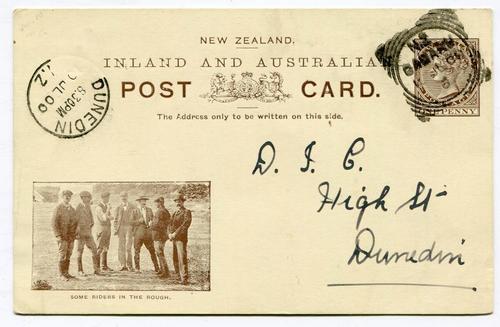 NEW ZEALAND.
INLAND AND AUSTRALIAN
POST CARD.
The Address only to be written on this side.
DUNEDIN
8.30PM
JL 00
N.Z
ONE PENNY
D. I. C.
High St
Dunedin
SOME RIDERS IN THE ROUGH.